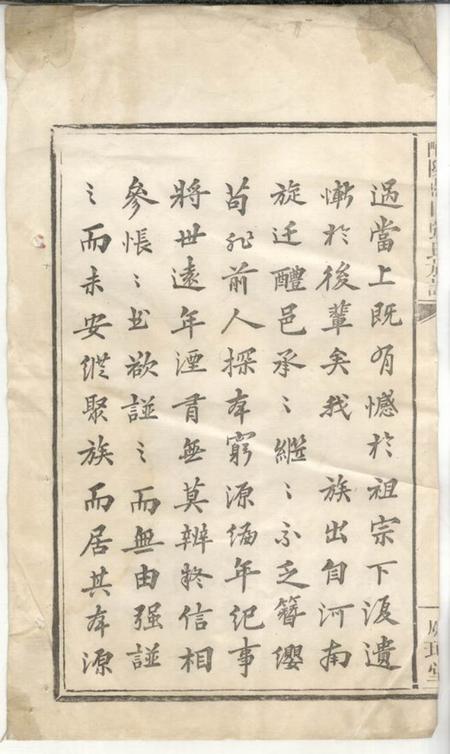 過當上既有憾於祖宗下復遺
慚於後輩矣我 族出自河南
旋迁醴邑承〻繼〻不乏簪纓
苟非前人探本窮源編年纪事
將世遠年湮胥無莫辨終信相
參悵〻出欲諩〻而無由强諩
〻而未安縱聚族而居其本源